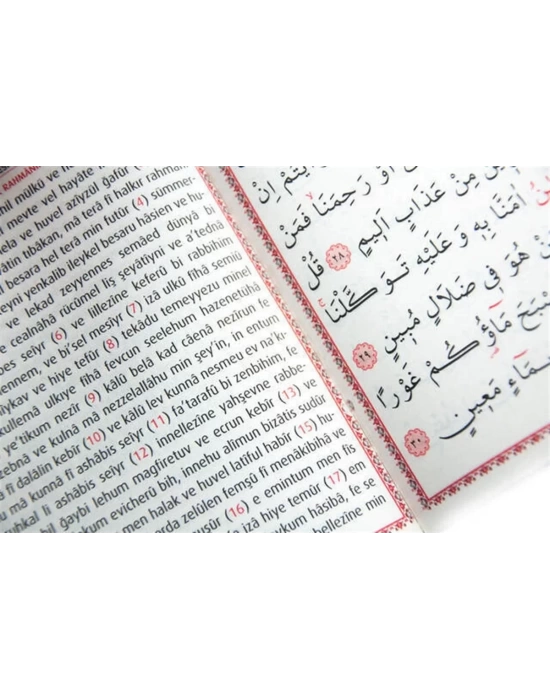 RAHMAN
hil mülkü ve
meyte vel hayâte
ve huvel azîyzül ğafûr
tıbâkan, mâ terâ fî halkır rahmân
besara hel terâ min futûr (4) sümmer-
yenkalib ileykel besaru hâsien ve hu-
ve lekad zeyyennes semâed dünyâ bi
cealnâhâ rücûmel liş şeyâtîyni ve a'tednâ
bes seîyr (6) ve lillezîne keferû bi rabbihim
ennem, ve bi'sel mesîyr (7) izâ ulkû fîhâ semiû
ve hiye tefûr (8) tekâdu temeyyezu minel
kullemâ ulkıye fîhâ fevcun seelehum hazenetühâ
e'tikum nezîr (9) kâlû belâ kad câenâ nezîrun fe
zebnâ ve kulnâ mâ nezzelallâhu min şey'in, in entum
fî dalâlin kebîr (10) ve kâlû lev kunnâ nesmeu ev na'k-
mâ kunnâ fî ashâbis seîyr (11) fa'tarafû bi zenbihim, fe
uhkal li ashâbis seîyr (12) innellezîne yahşevne rabbe-
bil ğaybi lehum mağfiretuv ve ecrun kebîr (13) ve
kum evicherû bih, innehu alîmun bizâtis sudûr
men halak ve huvel latîful habîr (15) hu-
arda zelûlen femşû fî menâkibihâ ve
nuşûr (16) e emintum men fis
izâ hiye temûr (17) em
aykum hâsibâ, fe se
bellezîne min
اِنْ
اَوْ رَحِمَنَاۙ فَمَنْ
مِنْ عَذَابٍ اَلٖيمٍ ٢٨ قُلْ
اٰمَنَّا بِهٖ وَعَلَيْهِ تَوَكَّلْنَاۚ
هُوَ فٖي ضَلَالٍ مُبٖينٍ ٢٩
مَٓاؤُ۬كُمْ غَوْرًا
مَعٖينٍ ٣٠